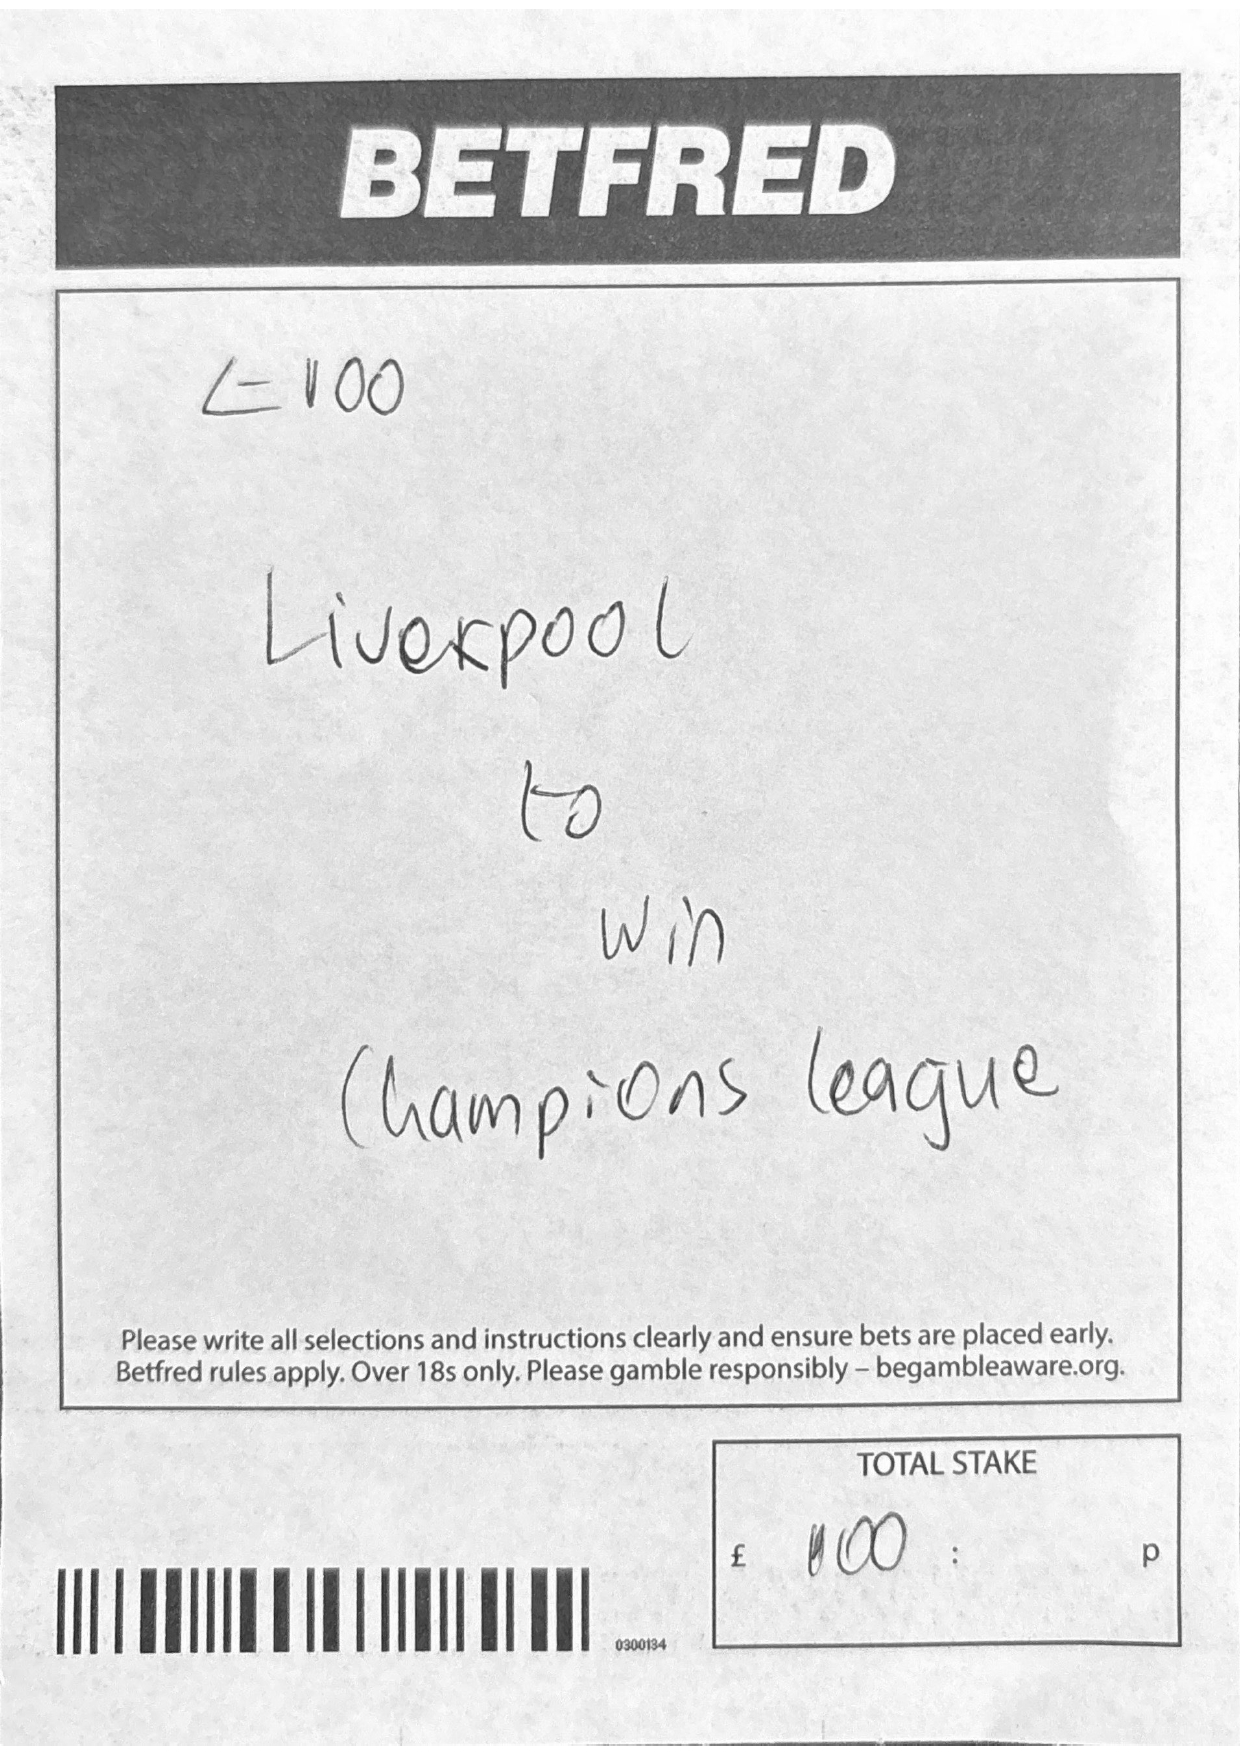 BETFRED
£100
Liverpool
to
win
Champions league
Please write all selections and instructions clearly and ensure bets are placed early.
Betfred rules apply. Over 18s only. Please gamble responsibly – begambleaware.org.
TOTAL STAKE
£ 100 : p
0300134